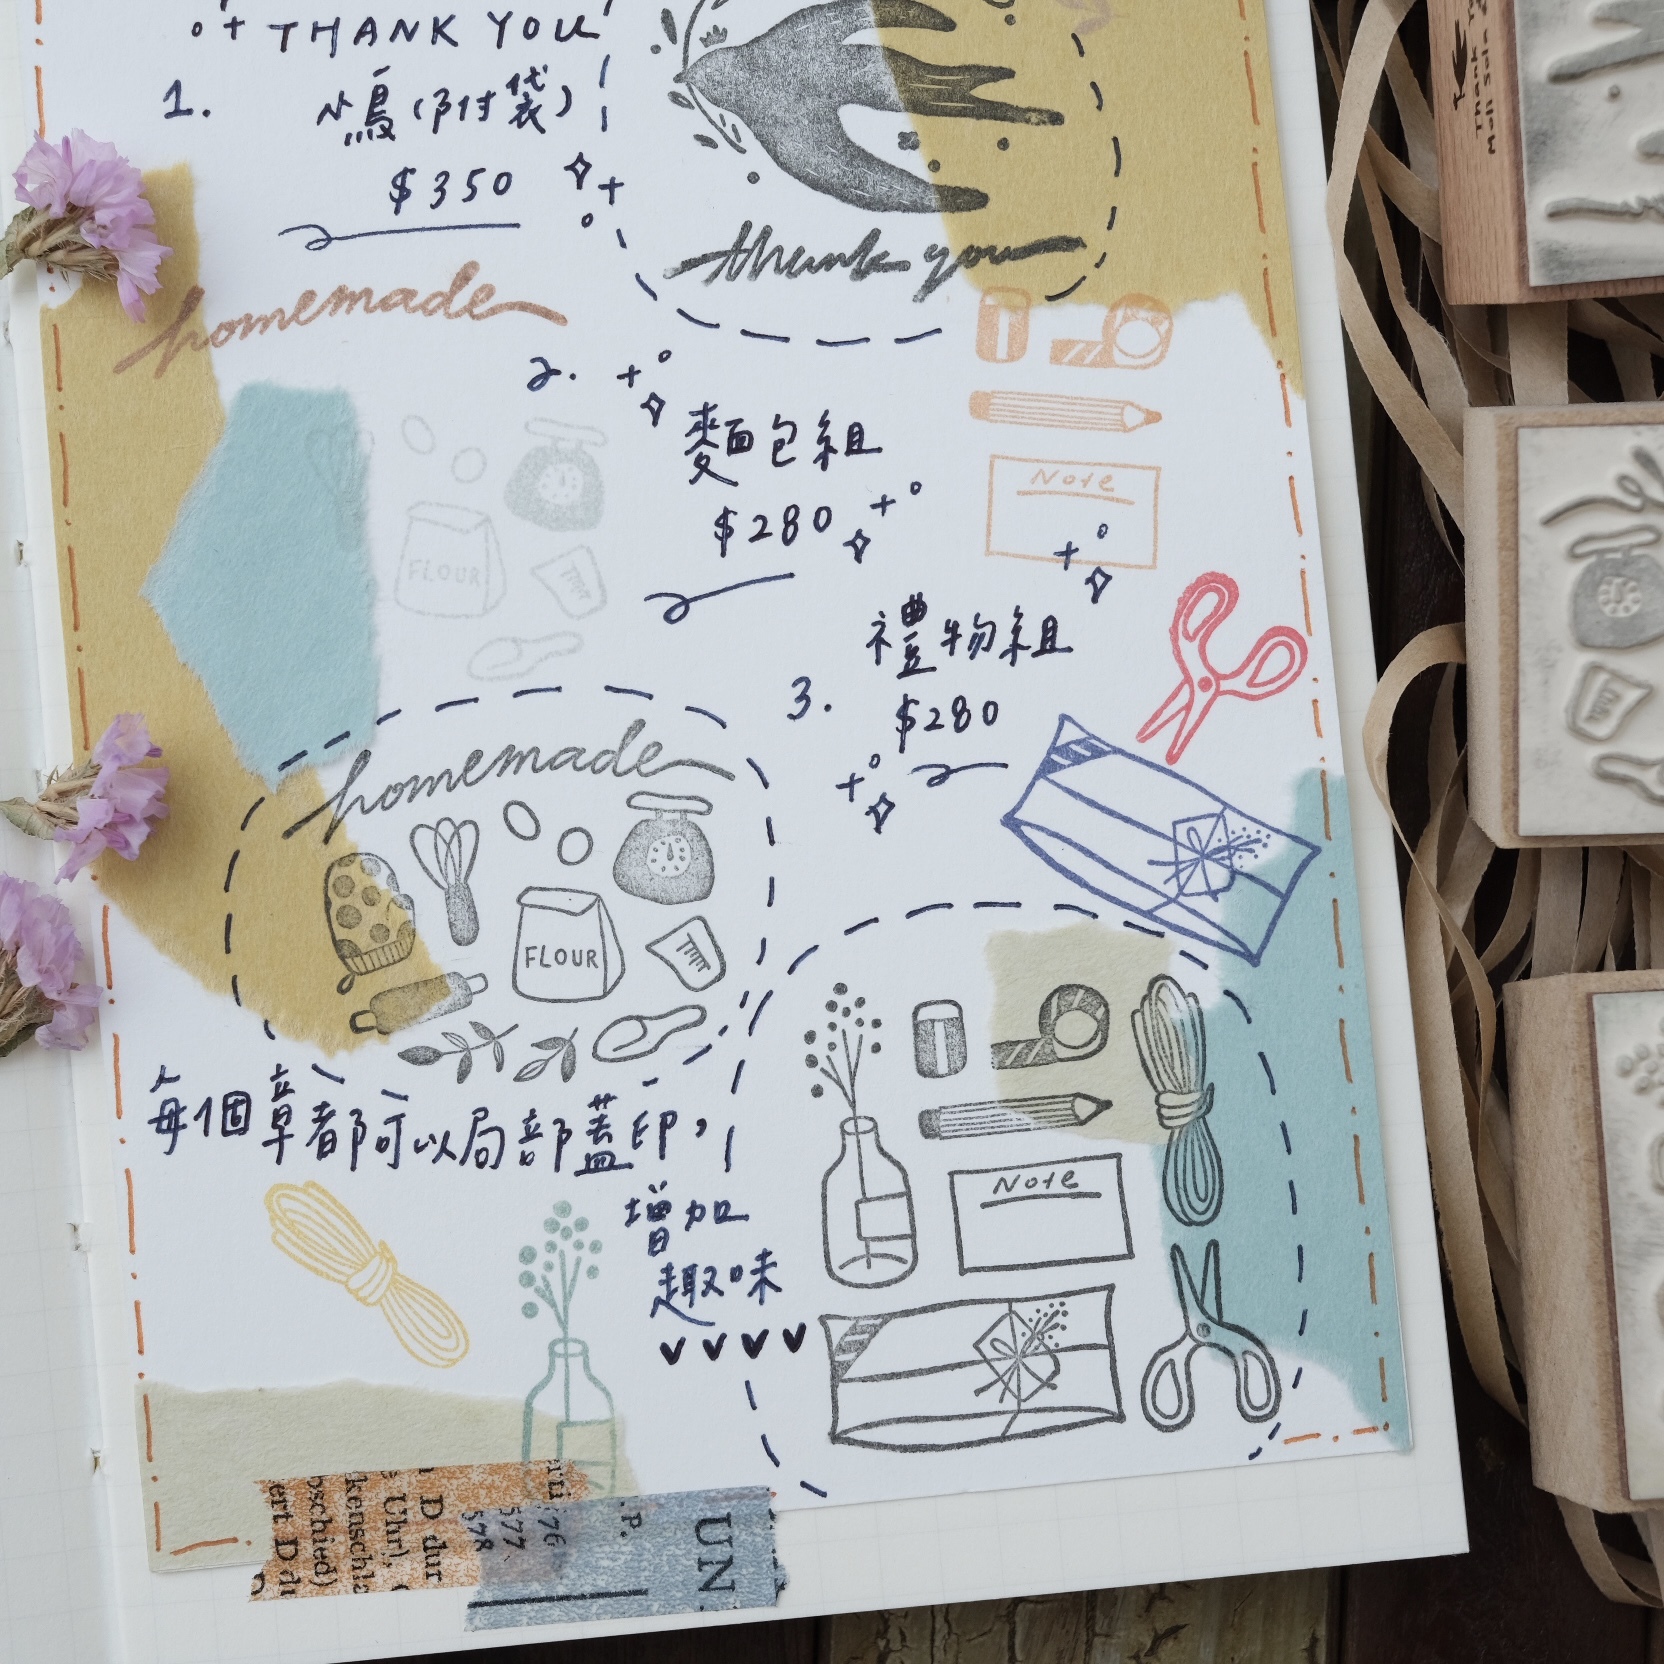 THANK YOU
1.
小鳥(附袋)
$350
thank you
homemade
2.
麵包組
$280
Note
FLOUR
3.
禮物組
$280
homemade
FLOUR
每個章都可以局部蓋印,
增加
趣味
Note
Thank
UN
P.
576
577
578
D dur
Uhr),
kenschla
oschied)
ert D du